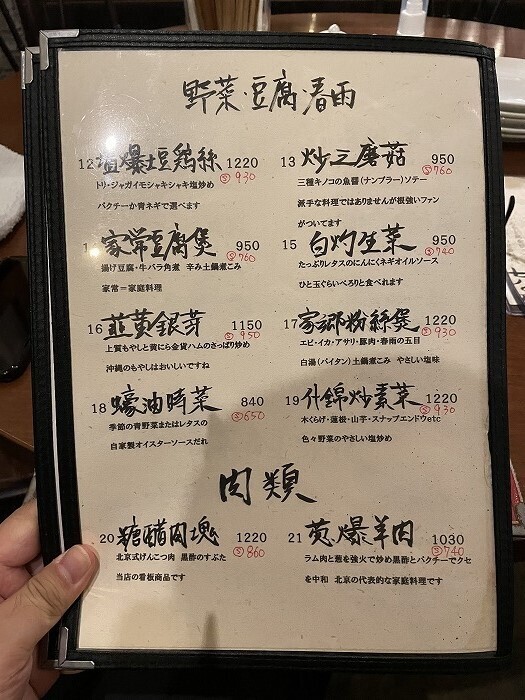 野菜・豆腐・春雨
12 塩爆土豆鶏絲 1220
Ⓢ930
トリ・ジャガイモシャキシャキ塩炒め
パクチーか青ネギで選べます
13 炒三磨菇 950
Ⓢ760
三種キノコの魚醤(ナンプラー)ソテー
派手な料理ではありませんが根強いファン
がついてます
家常豆腐煲 950
Ⓢ760
揚げ豆腐・牛バラ角煮 辛み土鍋煮こみ
家常=家庭料理
15 白灼生菜 950
Ⓢ740
たっぷりレタスのにんにくネギオイルソース
ひと玉ぐらいぺろりと食べれます
16 韮黄銀芽 1150
Ⓢ950
上質もやしと黄にら金貨ハムのさっぱり炒め
沖縄のもやしはおいしいですね
17 家郷粉絲煲 1220
Ⓢ930
エビ・イカ・アサリ・豚肉・春雨の五目
白湯(パイタン)土鍋煮こみ やさしい塩味
18 蠔油時菜 840
Ⓢ650
季節の青野菜またはレタスの
自家製オイスターソースだれ
19 什錦炒素菜 1220
Ⓢ930
木くらげ・蓮根・山芋・スナップエンドウetc
色々野菜のやさしい塩炒め
肉類
20 糖醋肉塊 1220
Ⓢ860
北京式げんこつ肉 黒酢のすぶた
当店の看板商品です
21 葱爆羊肉 1030
Ⓢ740
ラム肉と葱を強火で炒め黒酢とパクチーでクセ
を中和 北京の代表的な家庭料理です